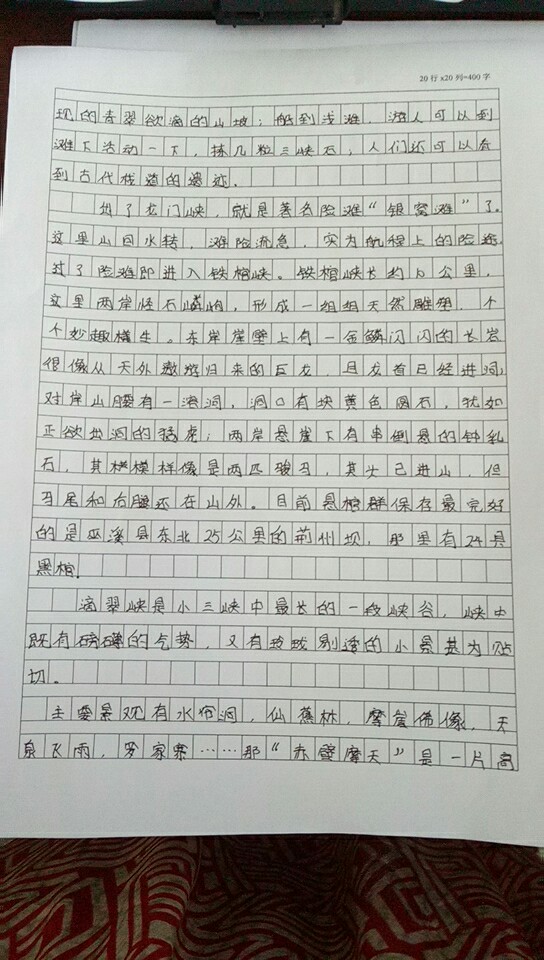 20行 x20列=400字
现的青翠欲滴的山坡；船到浅滩，游人可以到
滩下活动一下，拣几粒三峡石，人们还可以看
到古代栈道的遗迹．
出了龙门峡，就是著名险滩“银窝滩”了。
这里山回水转，滩险流急，实为航程上的险途，
过了险滩即进入铁棺峡。铁棺峡长约10公里，
这里两岸怪石嶙峋，形成一组组天然雕塑，个
个妙趣横生。东岸崖壁上有一金鳞闪闪的长岩
很像从天外遨游归来的巨龙，且龙首已经进洞；
对岸山腰有一溶洞，洞口有块黄色圆石，犹如
正欲出洞的猛虎；两岸悬崖下有串倒悬的钟乳
石，其模模样像是两匹骏马，其头已进山，但
马尾和后腿还在山外。目前悬棺群保存最完好
的是巫溪县东北25公里的荆州坝，那里有24具
黑棺．
滴翠峡是小三峡中最长的一段峡谷，峡中
既有磅礴的气势，又有玲珑剔透的小景甚为贴
切。
主要景观有水帘洞，仙蕉林，摩崖佛像，天
泉飞雨，罗家寨……那“赤壁摩天”是一片高